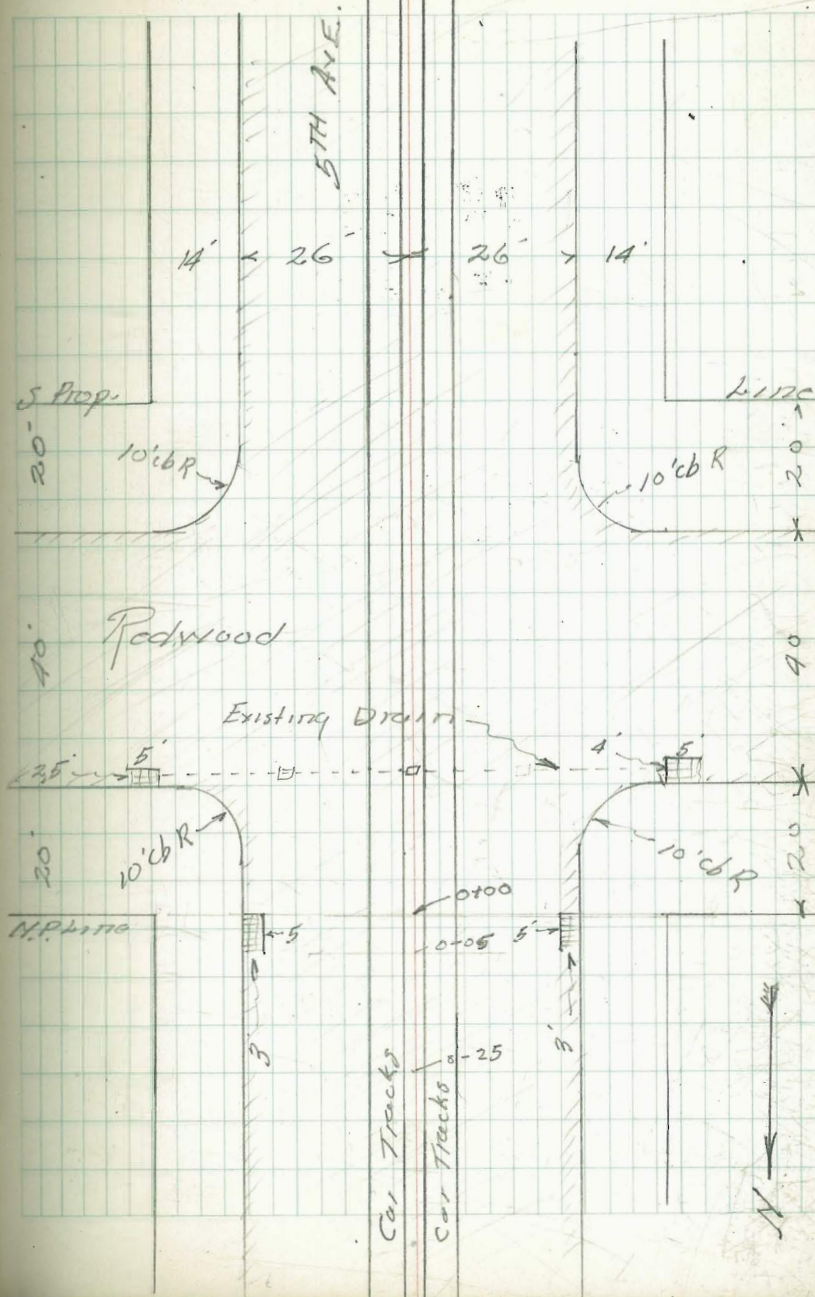 5TH AVE.
14' 26' 26' 14'
S Prop. Line
20' 20'
10' cb R 10' cb R
Redwood
40' 40
Existing Drain
2.5' 5' 4' 5'
20' 10' cb R 10' cb R 20
0+00
N.P. Line
5 0-05 5'
3' 0-25 3'
Car Tracks Car Tracks
N